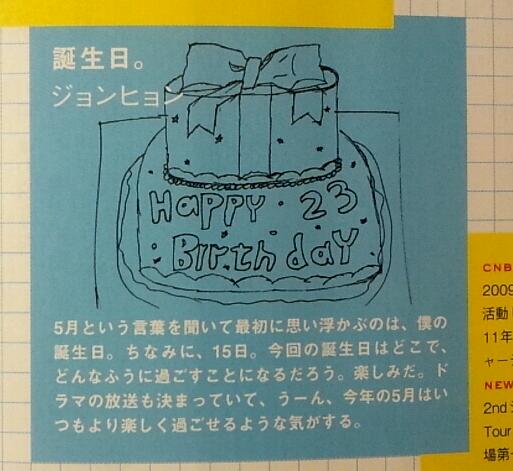 誕生日。
ジョンヒョン
HAPPY・23
BIrthdaY
5月という言葉を聞いて最初に思い浮かぶのは、僕の
誕生日。ちなみに、15日。今回の誕生日はどこで、
どんなふうに過ごすことになるだろう。楽しみだ。ド
ラマの放送も決まっていて、うーん、今年の5月はい
つもより楽しく過ごせるような気がする。
CNB
2009
活動
11年
ャー
NEW
2nd
Tour
場第